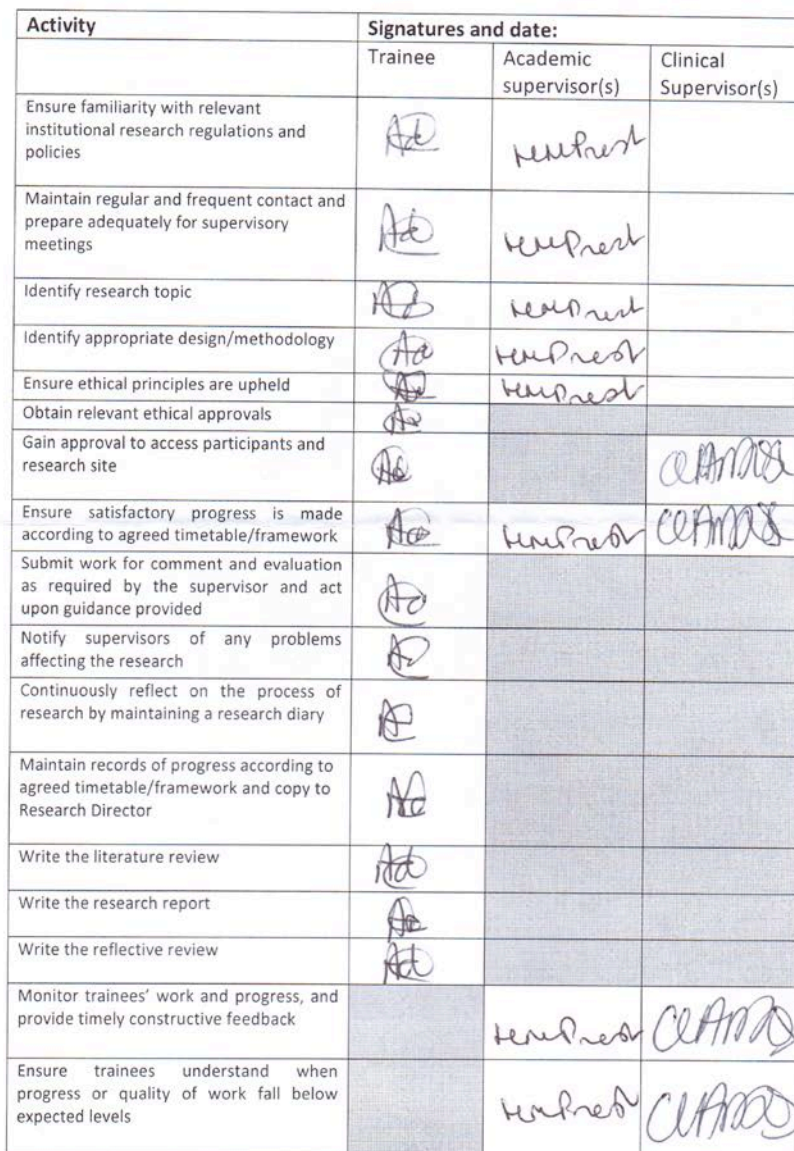 Activity
Signatures and date:
Trainee
Academic
supervisor(s)
Clinical
Supervisor(s)
Ensure familiarity with relevant
institutional research regulations and
policies
Maintain regular and frequent contact and
prepare adequately for supervisory
meetings
Identify research topic
Identify appropriate design/methodology
Ensure ethical principles are upheld
Obtain relevant ethical approvals
Gain approval to access participants and
research site
Ensure satisfactory progress is made
according to agreed timetable/framework
Submit work for comment and evaluation
as required by the supervisor and act
upon guidance provided
Notify supervisors of any problems
affecting the research
Continuously reflect on the process of
research by maintaining a research diary
Maintain records of progress according to
agreed timetable/framework and copy to
Research Director
Write the literature review
Write the research report
Write the reflective review
Monitor trainees' work and progress, and
provide timely constructive feedback
Ensure trainees understand when
progress or quality of work fall below
expected levels